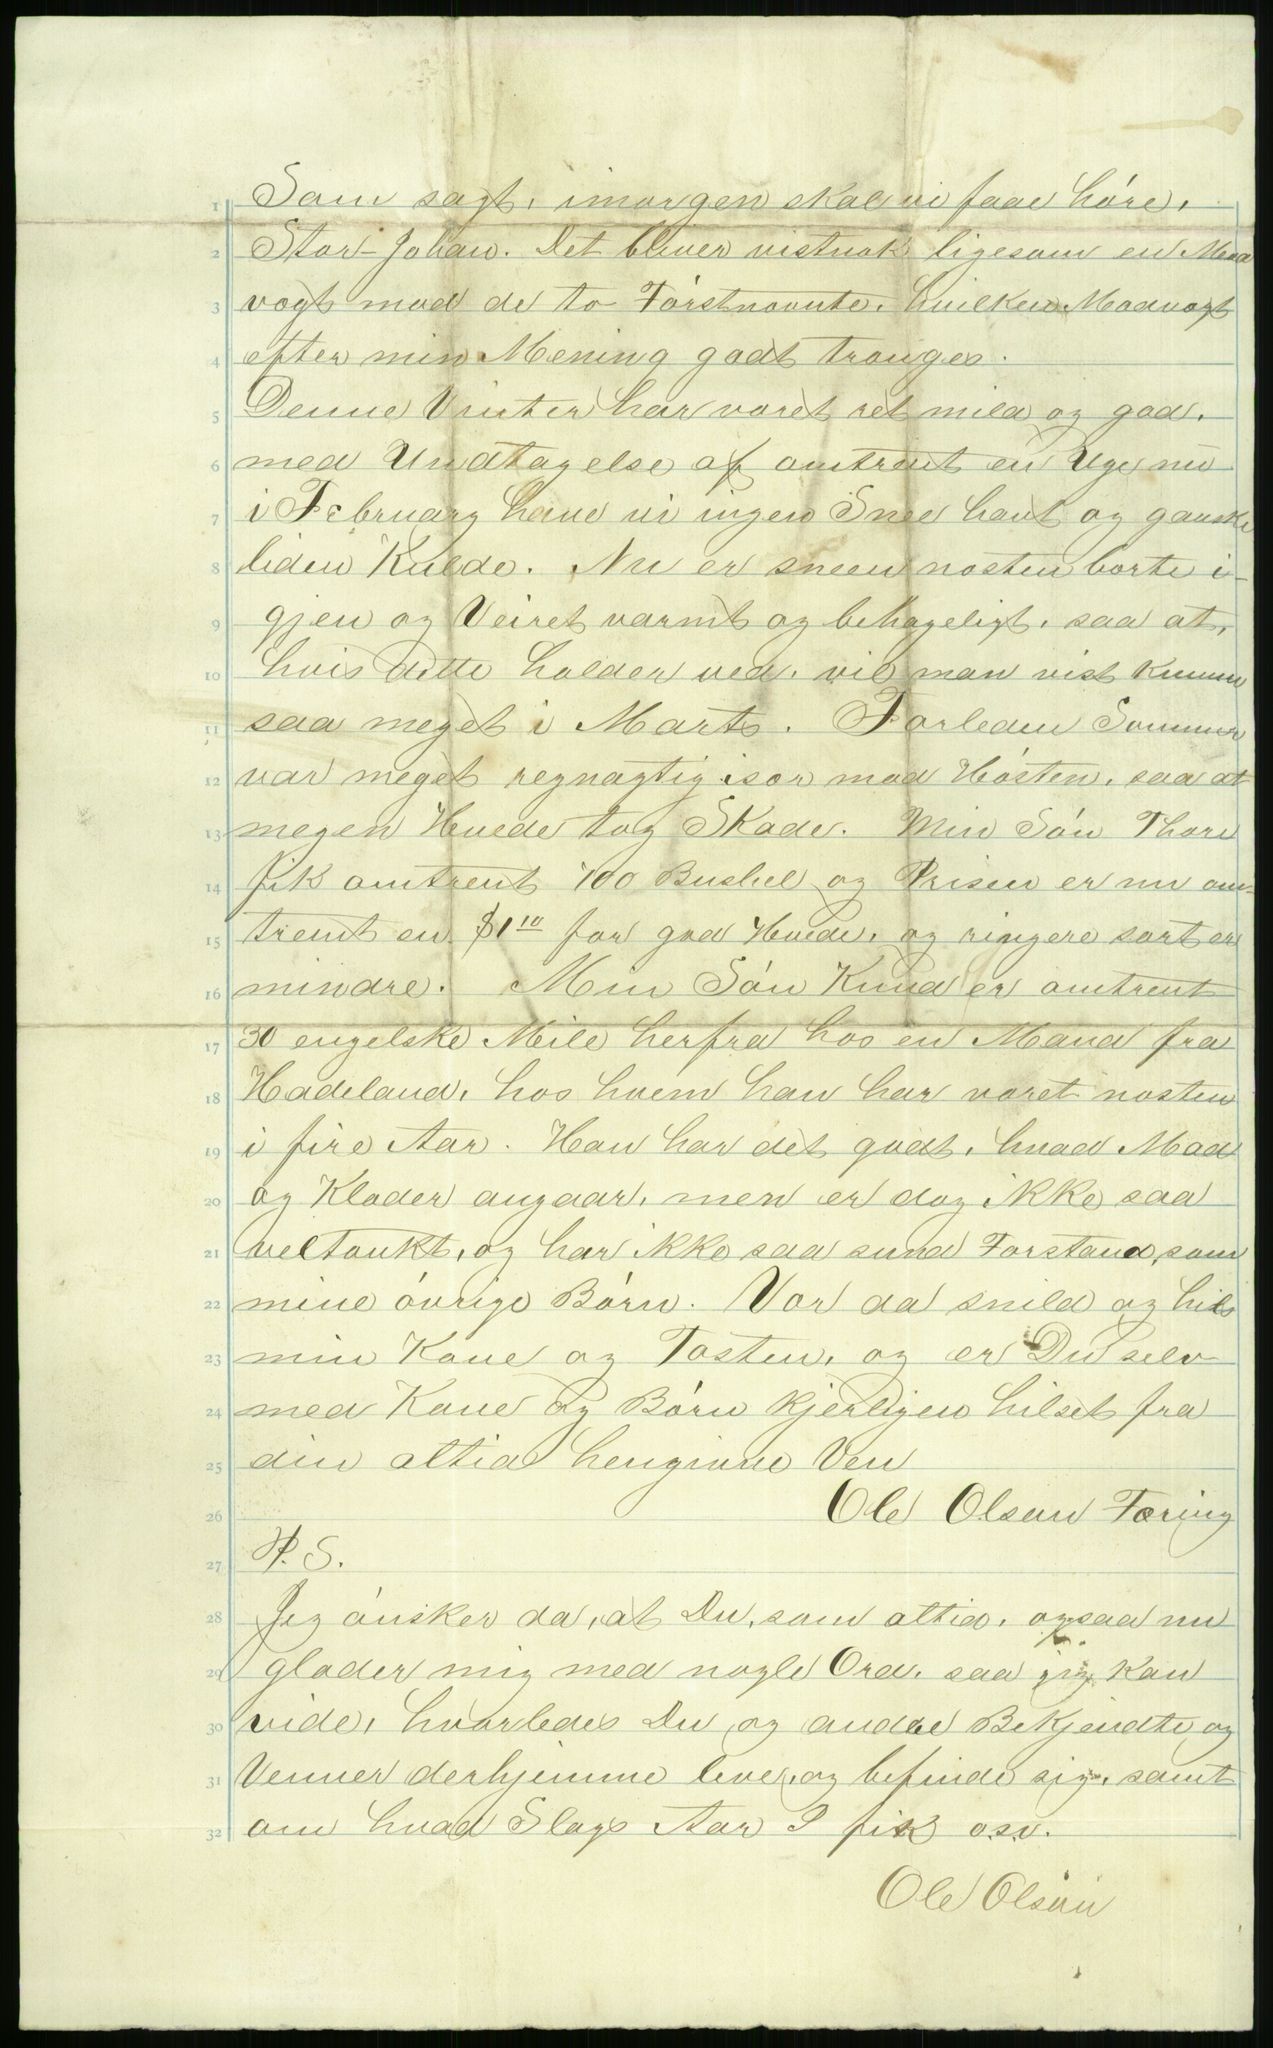 1 Som sagt, imorgen skal vi faae høre,
2 Stor-Johan. Det bliver vistnok ligesom en Mod
3 vogt mod de to Førstnævnte, hvilken Modvægt
4 efter min Mening godt trænges.
5 Denne Vinter har været ret mild og god,
6 med Undtagelse af omtrent en Uge nu
7 i February have vi ingen Snee havt og ganske
8 liden Kulde. Nu er sneen næsten borte i-
9 gjen og Veiret varmt og behageligt, saa at,
10 hvis dette holder ved, vil man vist kunne
11 saa meget i Marts. Forleden Sommer
12 var meget regnagtig især mod Høsten, saa at
13 megen Hvede tog Skade. Min Søn Thore
14 fik omtrent 100 Bushel og Prisen er nu om-
15 trent en $1 10 for god Hvede, og ringere sort er
16 mindre. Min Søn Knud er omtrent
17 30 engelske Mile herfra hos en Mand fra
18 Hadeland, hos hvem han har været næsten
19 i fire Aar. Han har det godt, hvad Mad
20 og Klæder angaar, men er dog ikke saa
21 veltænkt, og har ikke saa sund Forstand, som
22 mine øvrige Børn. Vær da snild og hils
23 min Kone og Tosten, og er Du selv
24 med Kone og Børn kjerligen hilset fra
25 din altid hengivne Ven
26 Ole Olsen Tøring
27 P. S.
28 Jeg ønsker da, at Du, som altid, ogsaa nu
29 glæder mig med nogle Ord, saa jeg kan
30 vide, hvorledes Du og andre Bekjendte og
31 Venner derhjemme leve, og befinde sig, samt
32 om hvad Slags Aar I fik osv.
Ole Olsen